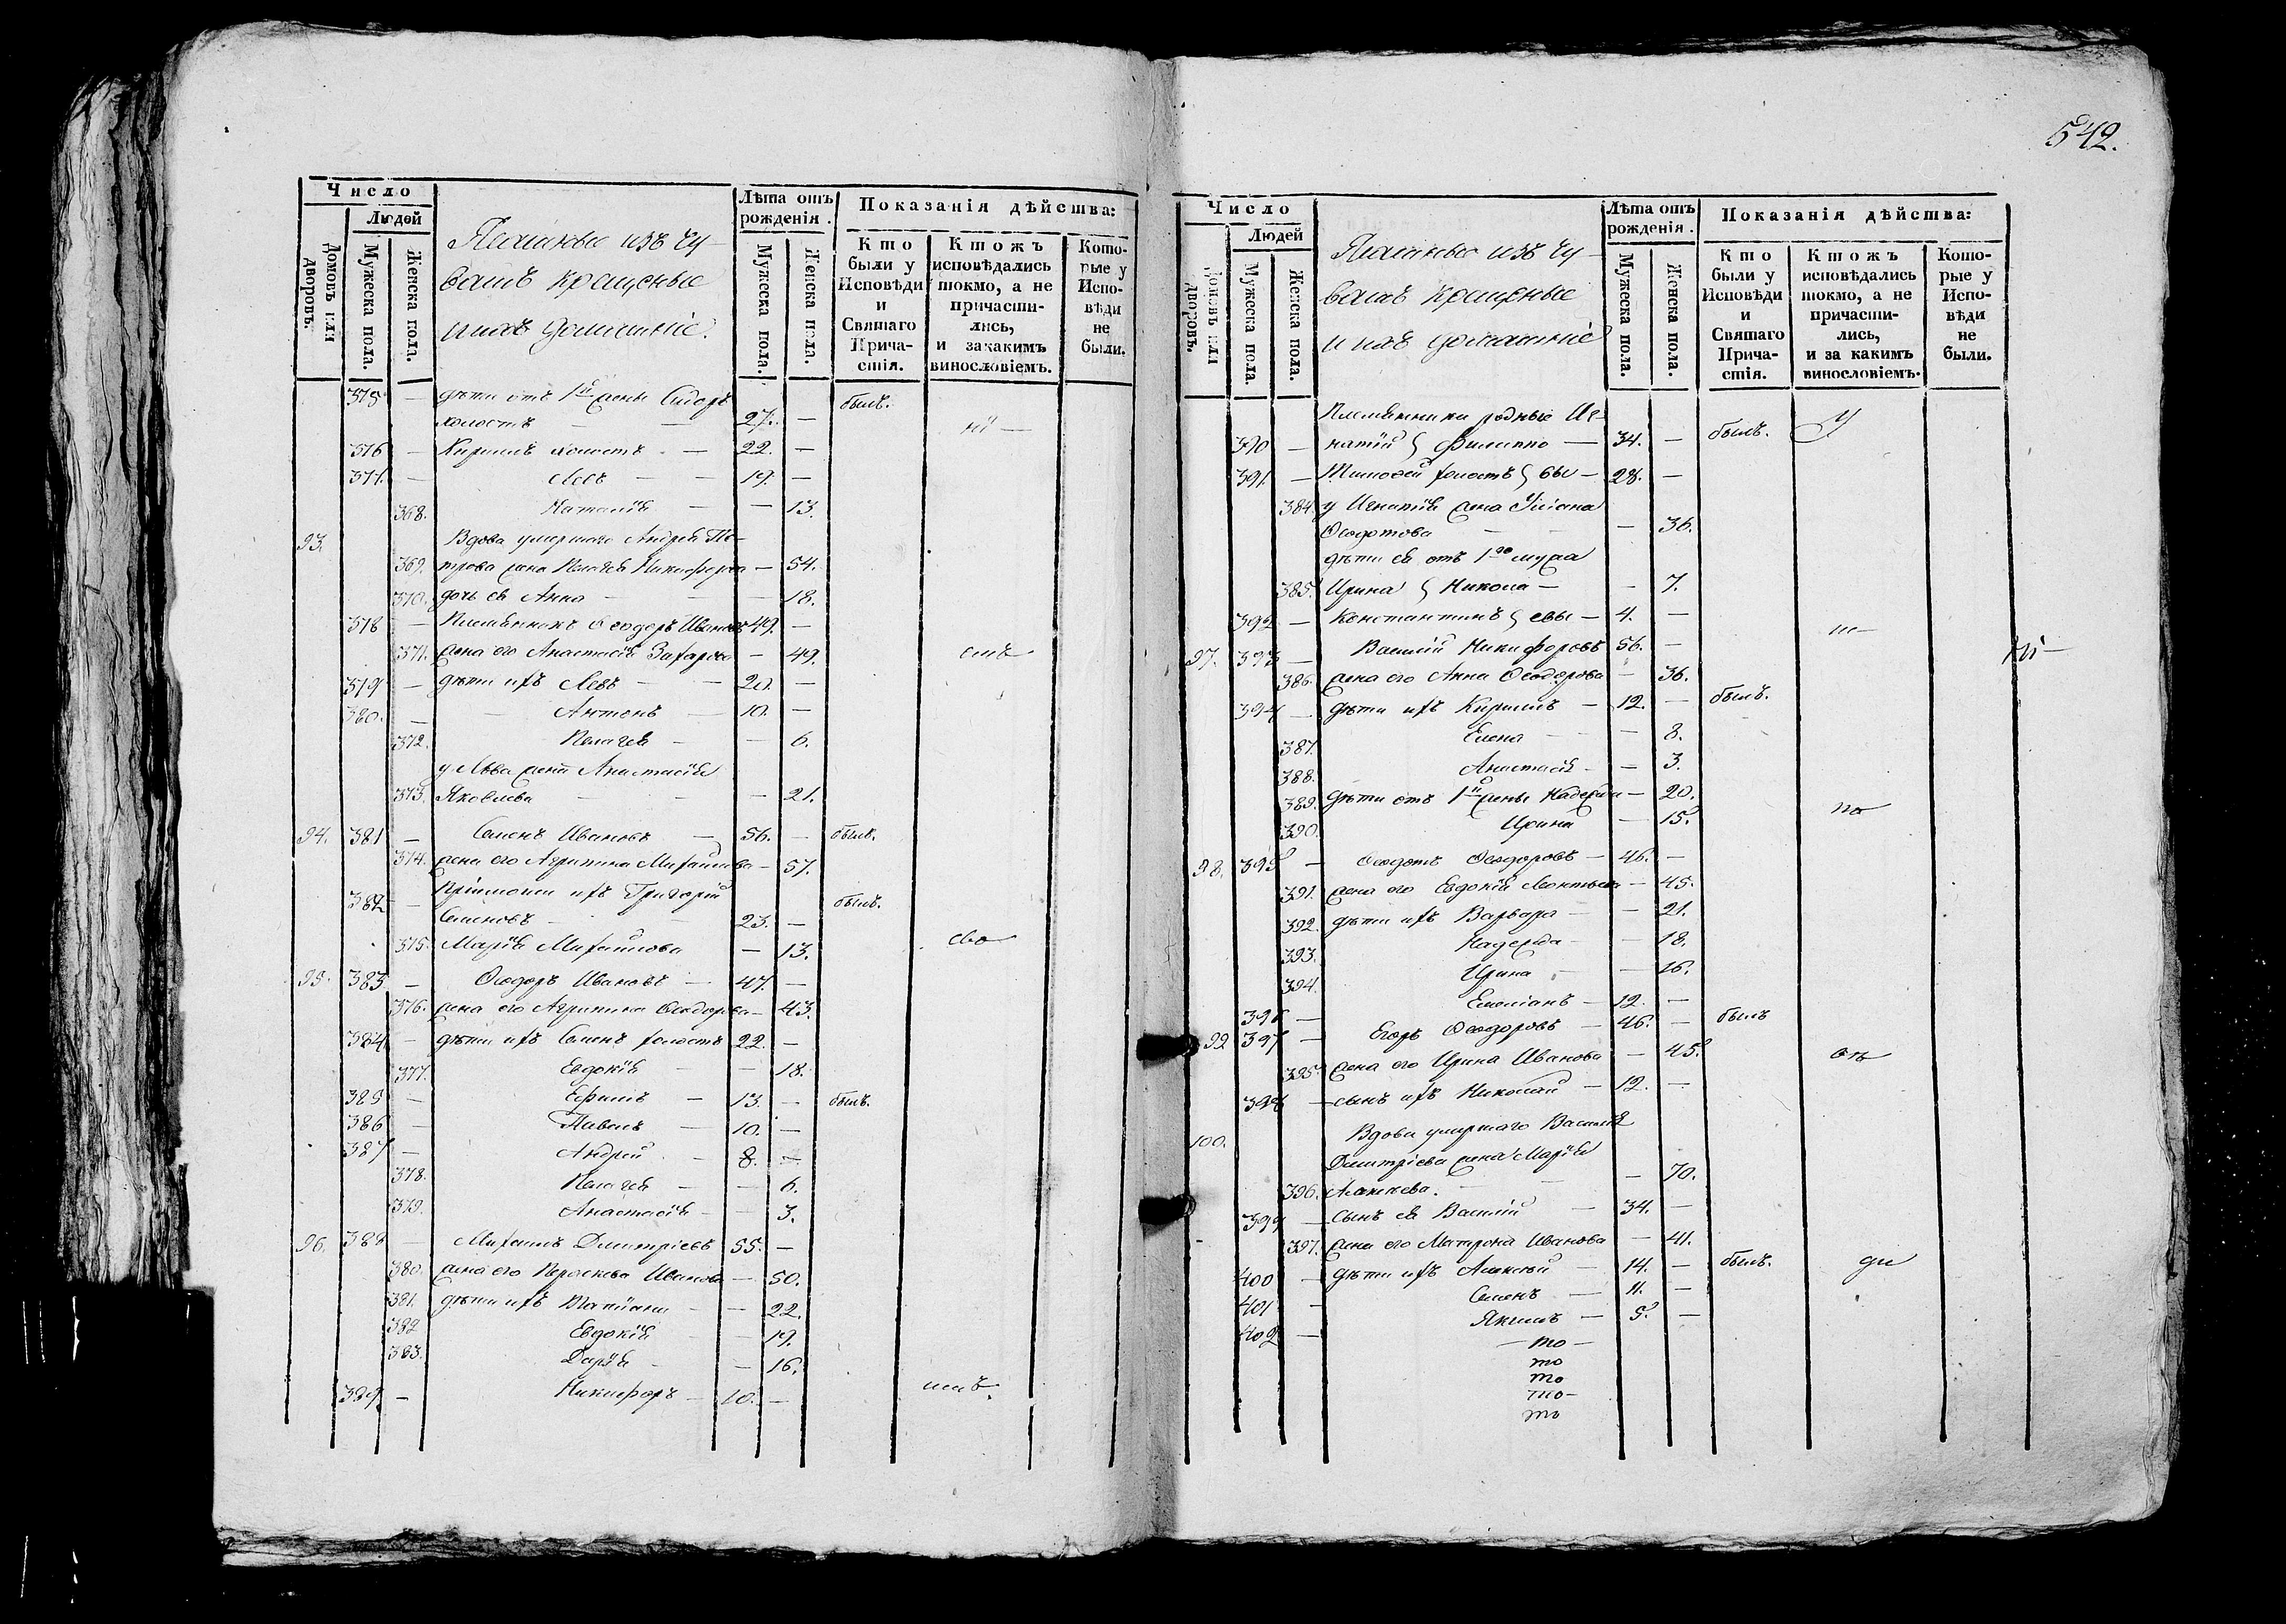 542.
Число
Людей
Домовъ или дворовъ.
Мужеска пола.
Женска пола.
Пахатные изъ чу-
вашъ крещеные
и ихъ домашніе.
Лѣта отъ рожденія.
Мужеска пола.
Женска пола.
Показанія дѣйства:
Кто были у Исповѣди и Святаго Прича- стія.
Ктожъ исповѣдались токмо, а не причасти- лись, и за какимъ винословіемъ.
Кото- рые у Испо- вѣди не были.
375 — дѣти отъ 1й жены Сидоръ
холостъ — 27. — былъ.
376 — Кирилъ холостъ — 22. —
377. — Левъ — 19. —
368. Наталія — 13.
93. Вдова умершаго Андрея Пе-
369. трова жена Пелагея Никифорова — 54.
370. дочь ея Анна — 18.
378 — Племянникъ Ѳеодоръ Ивановъ 49. —
371. жена его Анастасія Захарова — 49.
379 — дѣти ихъ Левъ — 20. —
380. — Антонъ — 10. —
372. Пелагея — 6.
у Льва жена Анастасія
373. Яковлева — 21.
94. 381 — Семенъ Ивановъ — 56. — былъ.
374. жена его Агрипина Михайлова — 57.
382 — Пріимыши ихъ Григорій
Семеновъ — 23. — былъ.
375. Марія Михайлова — 13.
95. 383 — Ѳеодоръ Ивановъ — 47. —
376. жена его Агрипина Ѳеодорова — 43.
384 — дѣти ихъ Семенъ холостъ 22. —
377. Евдокія — 18.
385 — Ефимъ — 13. — былъ.
386 — Павелъ — 10. —
387 — Андрей — 8. —
378. Пелагея — 6.
379. Анастасія — 3.
96. 388 — Михаилъ Димитріевъ 55. —
380. жена его Параскева Иванова — 50.
381. дѣти ихъ Татіана — 22.
382 Евдокія — 19.
383. Дарія — 16.
389. — Никифоръ — 10. —
Число
Людей
Домовъ или дворовъ.
Мужеска пола.
Женска пола.
Пахатные изъ чу-
вашъ крещеные
и ихъ домашніе
Лѣта отъ рожденія.
Мужеска пола.
Женска пола.
Показанія дѣйства:
Кто были у Исповѣди и Святаго Прича- стія.
Ктожъ исповѣдались токмо, а не причасти- лись, и за какимъ винословіемъ.
Кото- рые у Испо- вѣди не были.
Племянники родные Иг-
390 — натій } Филиппо — 34. — былъ.
391. — Тимоѳей холостъ } вы — 28. —
384. у Игнатія жена Уліана
Ѳеодотова — 36.
дѣти ея отъ 1го мужа
385. Ирина } Никола — 7.
392 — Константинъ } евы — 4. —
97. 393 — Василій Никифоровъ 56. —
386. жена его Анна Ѳеодорова — 36.
394 — дѣти ихъ Кирилъ — 12. — былъ.
387. Елена — 8.
388. Анастасія — 3.
389. дѣти отъ 1й жены Надежда — 20.
390. Ирина — 15.
98. 395 — Ѳеодотъ Ѳеодоровъ — 46. —
391. жена его Евдокія Леонтьева — 45.
392. дѣти ихъ Варвара — 21.
393. Надежда — 18.
394. Ирина — 16.
396 — Емеліанъ — 12. —
99 397 — Егоръ Ѳеодоровъ — 46. — былъ
395. жена его Ирина Иванова — 45.
398 — сынъ ихъ Николай — 12. —
100. Вдова умершаго Василія
Димитріева жена Марія
396. Алексеева. — 70.
399 — Сынъ ея Василій — 34. —
397. жена его Матрона Иванова — 41.
400 — дѣти ихъ Алексѣй — 14. — былъ.
401 — Семенъ — 11. —
402 — Якимъ — 5. —
— то —
то
то
то —
то